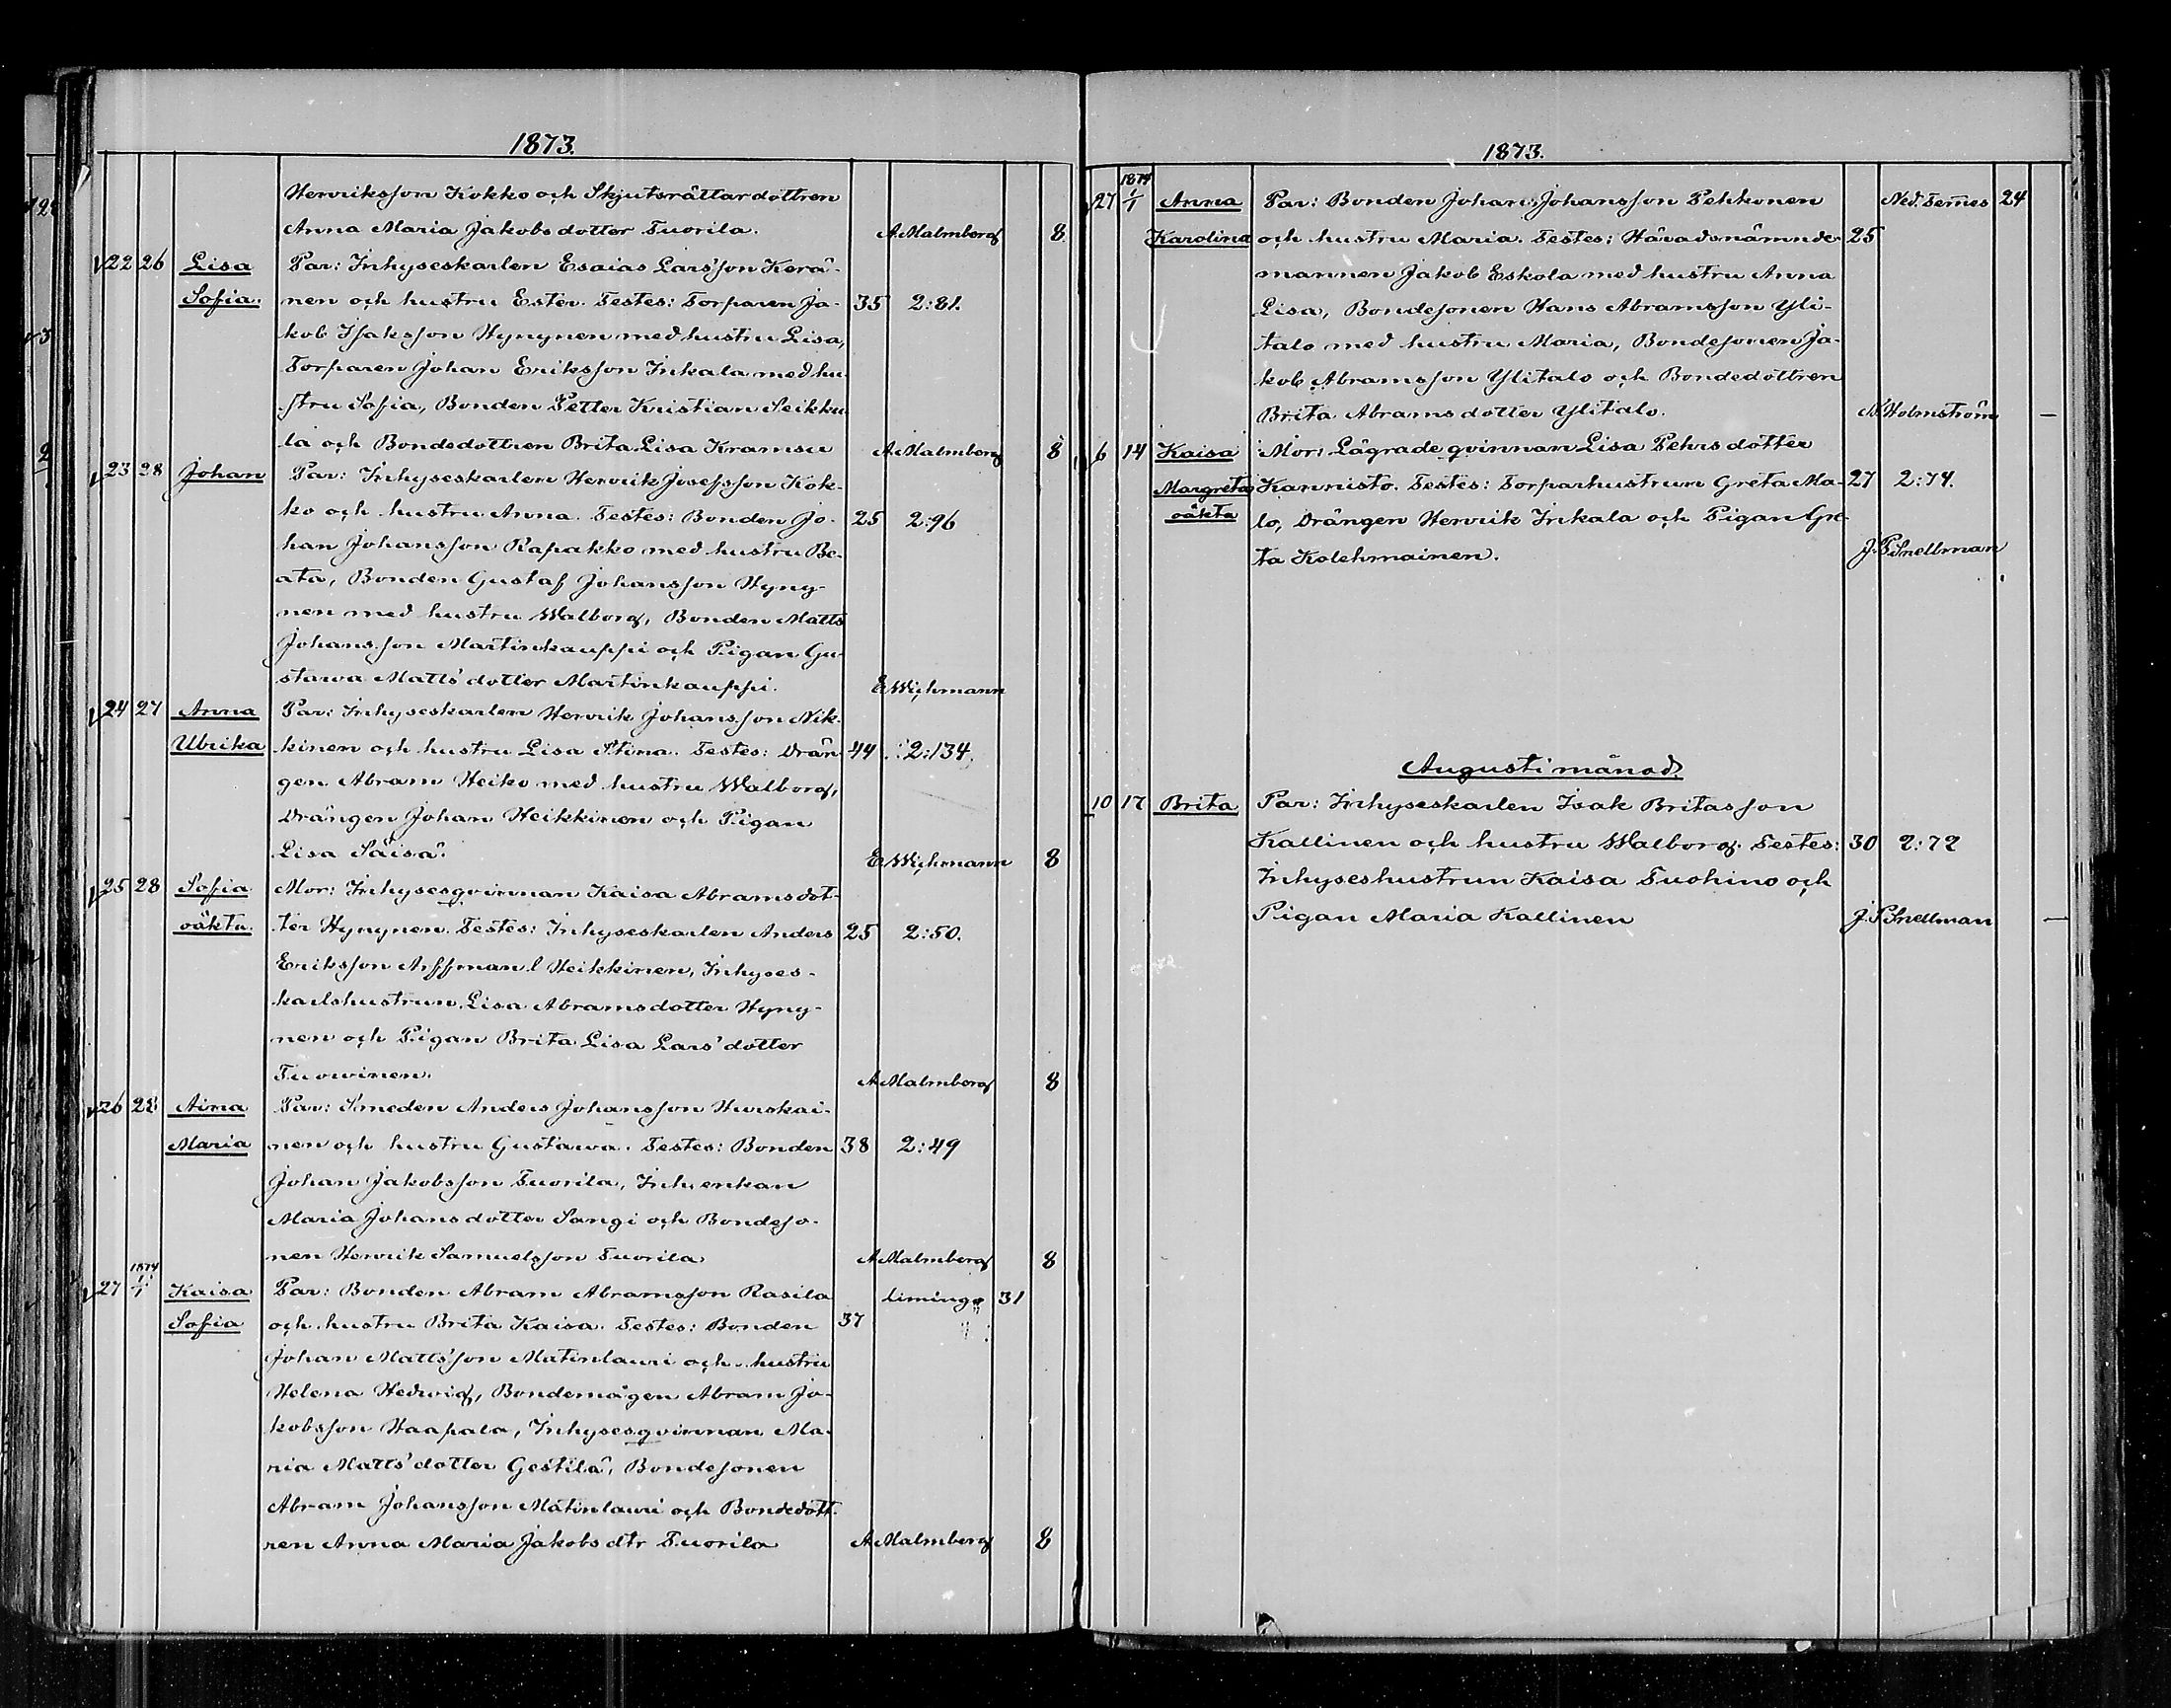 1873.
Henriksson Kokko och Skjutsrättardottren
Anna Maria Jakobsdotter Tuorila. A. Malmberg 8
22 26 Lisa Par: Inhyseskarlen Esaias Lars'son Kerä-
Sofia. nen och hustru Ester. Testes: Torparen Ja- 35 2:81.
kob Isaksson Hynynen med hustru Lisa,
Torparen Johan Eriksson Inkala med hu-
stru Sofia, Bonden Petter Kristian Seikku
la och Bondedottren Brita Lisa Kramsu A. Malmberg 8
23 28 Johan Par: Inhyseskarlen Henrik Josefsson Kok-
ko och hustru Anna. Testes: Bonden Jo- 25 2:96
han Johansson Rapakko med hustru Be-
ata, Bonden Gustaf Johansson Hyny-
nen med hustru Walborg, Bonden Matts
Johansson Martinkauppi och Pigan Gu-
stava Matts'dotter Martinkauppi. E. Wichmann
24 27 Anna Par: Inhyseskarlen Henrik Johansson Nik-
Ulrika kinen och hustru Lisa Stina. Testes: Drän 44 2:134.
gen Abram Heiko med hustru Walborg,
Drängen Johan Heikkinen och Pigan
Lisa Säisä. E. Wichmann 8
25 28 Sofia Mor: Inhysesqvinnan Kaisa Abramsdot-
oäkta. ter Hynynen. Testes: Inhyseskarlen Anders 25 2:50.
Eriksson Arffman l Heikkinen, Inhyses-
karlshustrun Lisa Abramsdotter Hyny-
nen och Pigan Brita Lisa Lars'dotter
Tuovinen. A. Malmberg 8
26 28 Aina Par: Smeden Anders Johansson Hurskai-
Maria nen och hustru Gustava. Testes: Bonden 38 2:49
Johan Jakobsson Tuorila, Inh. enkan
Maria Johansdotter Sangi och Bondeso-
nen Henrik Samuelsson Tuorila A. Malmberg 8
27 1874 1/1 Kaisa Par: Bonden Abram Abramsson Rasila Limingo 31
Sofia och hustru Brita Kaisa. Testes: Bonden 37
Johan Matts'son Matinlauri och hustru
Helena Hedvig, Bondemågen Abram Ja-
kobsson Haapala, Inhysesqvinnan Ma-
ria Matts'dotter Gestilä, Bondesonen
Abram Johansson Matinlauri och Bondedott-
ren Anna Maria Jakobsdtr Tuorila A. Malmberg 8
1873.
27 1874 1/1 Anna Par: Bonden Johan Johansson Pehkonen Ned. Temes 24
Karolina och hustru Maria. Testes: Häradsnämnde- 25
mannen Jakob Eskola med hustru Anna
Lisa, Bondesonen Hans Abramsson Yli-
talo med hustru Maria, Bondesonen Ja-
kob Abramsson Ylitalo och Bondedottren
Brita Abramsdotter Ylitalo. N. Holmström —
6 14 Kaisa Mor: Lägrade qvinnan Lisa Pehrsdotter
Margreta Kannisto. Testes: Torparhustrun Greta Ma- 27 2:74.
oäkta lo, Drängen Henrik Inkala och Pigan Gre-
ta Kolehmainen. J. P. Snellman
Augusti månad.
10 17 Brita Par: Inhyseskarlen Isak Britasson
Kallinen och hustru Walborg. Testes: 30 2:72
Inhyseshustrun Kaisa Tuohino och
Pigan Maria Kallinen J. P. Snellman —